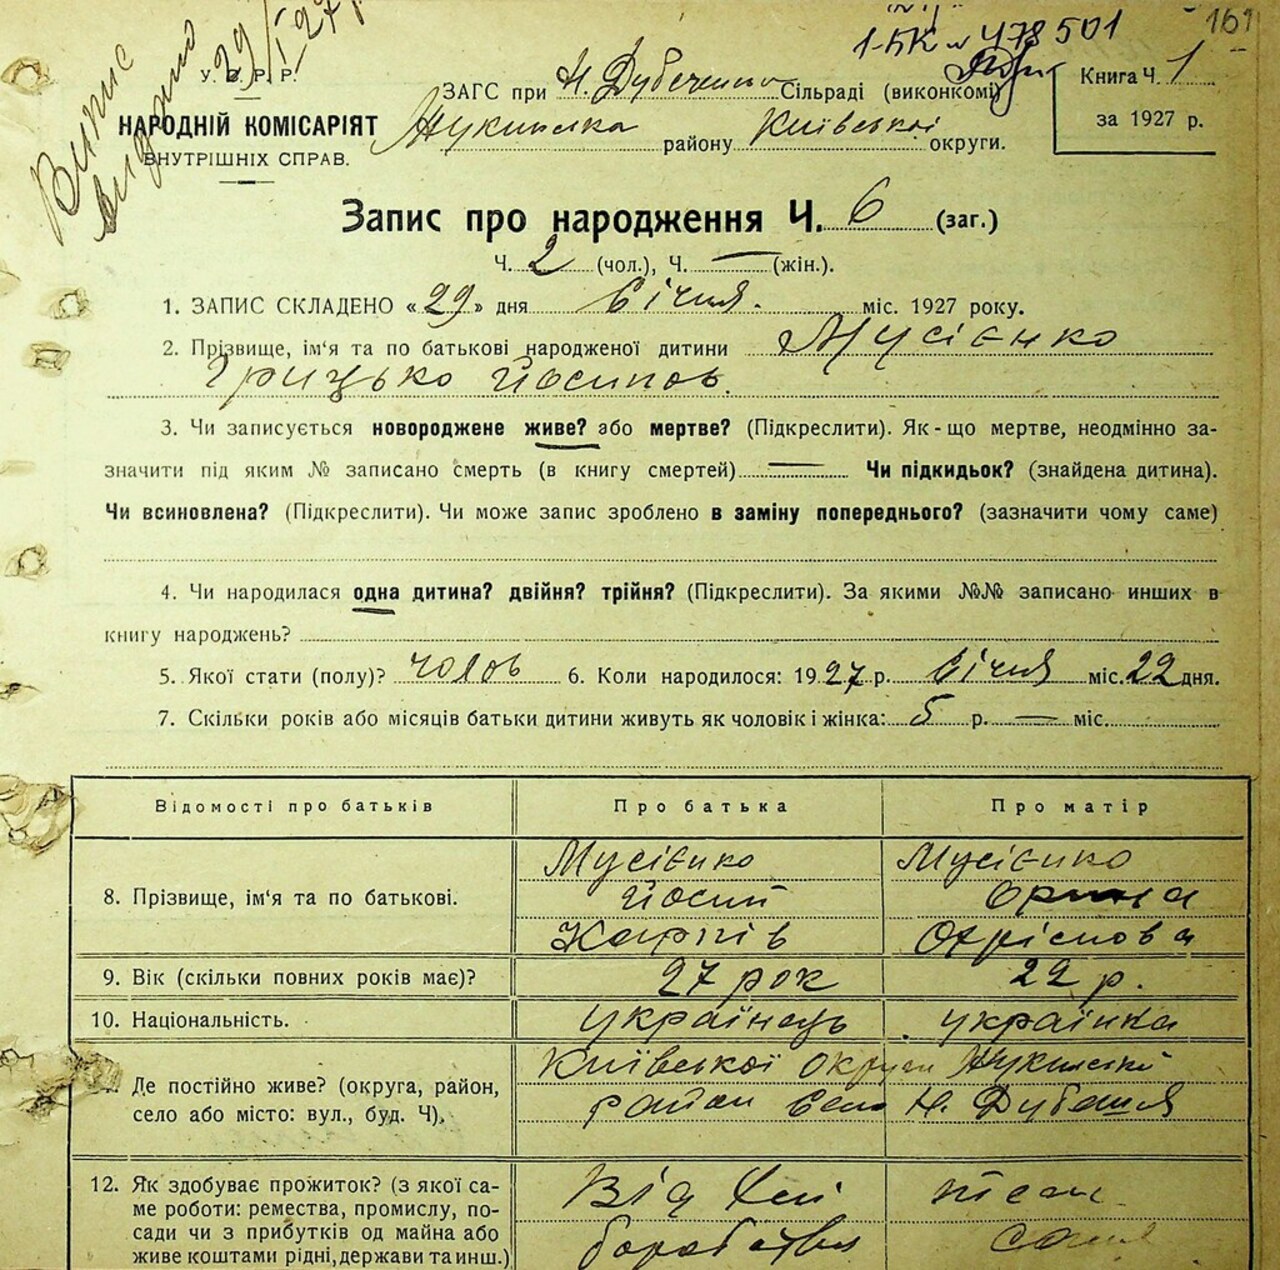 161
1-БК № 478501
Випис видано 29/I 27 р
У. С. Р. Р.
НАРОДНІЙ КОМІСАРІЯТ
ВНУТРІШНІХ СПРАВ.
ЗАГС при Н. Дубеченск Сільраді (виконкомі)
району Київської округи.
Книга Ч. 1
за 1927 р.
Запис про народження Ч. 6 (заг.)
Ч. 2 (чол.), Ч. — (жін.).
1. ЗАПИС СКЛАДЕНО «29» дня Січня. міс. 1927 року.
2. Прізвище, ім'я та по батькові народженої дитини Мусієнко
Грицько Йосипов.
3. Чи записується новороджене живе? або мертве? (Підкреслити). Як-що мертве, неодмінно за-
значити під яким № записано смерть (в книгу смертей) — Чи підкидьок? (знайдена дитина).
Чи всиновлена? (Підкреслити). Чи може запис зроблено в заміну попереднього? (зазначити чому саме)
4. Чи народилася одна дитина? двійня? трійня? (Підкреслити). За якими №№ записано инших в
книгу народжень?
5. Якої стати (полу)? чолов 6. Коли народилося: 1927 р. Січня міс. 22 дня.
7. Скільки років або місяців батьки дитини живуть як чоловік і жінка: 5 р. — міс.
Відомості про батьків Про батька Про матір
8. Прізвище, ім'я та по батькові.
Мусієнко Мусієнко
Йосип Орина
Карпів
9. Вік (скільки повних років має)? 27 рок 22 р.
10. Національність. українець українка
Де постійно живе? (округа, район,
село або місто: вул., буд. Ч).
Київської округи
район село Н. Дубешня
12. Як здобуває прожиток? (з якої са-
ме роботи: ремества, промислу, по-
сади чи з прибутків од майна або
живе коштами рідні, держави та инш.)
Від